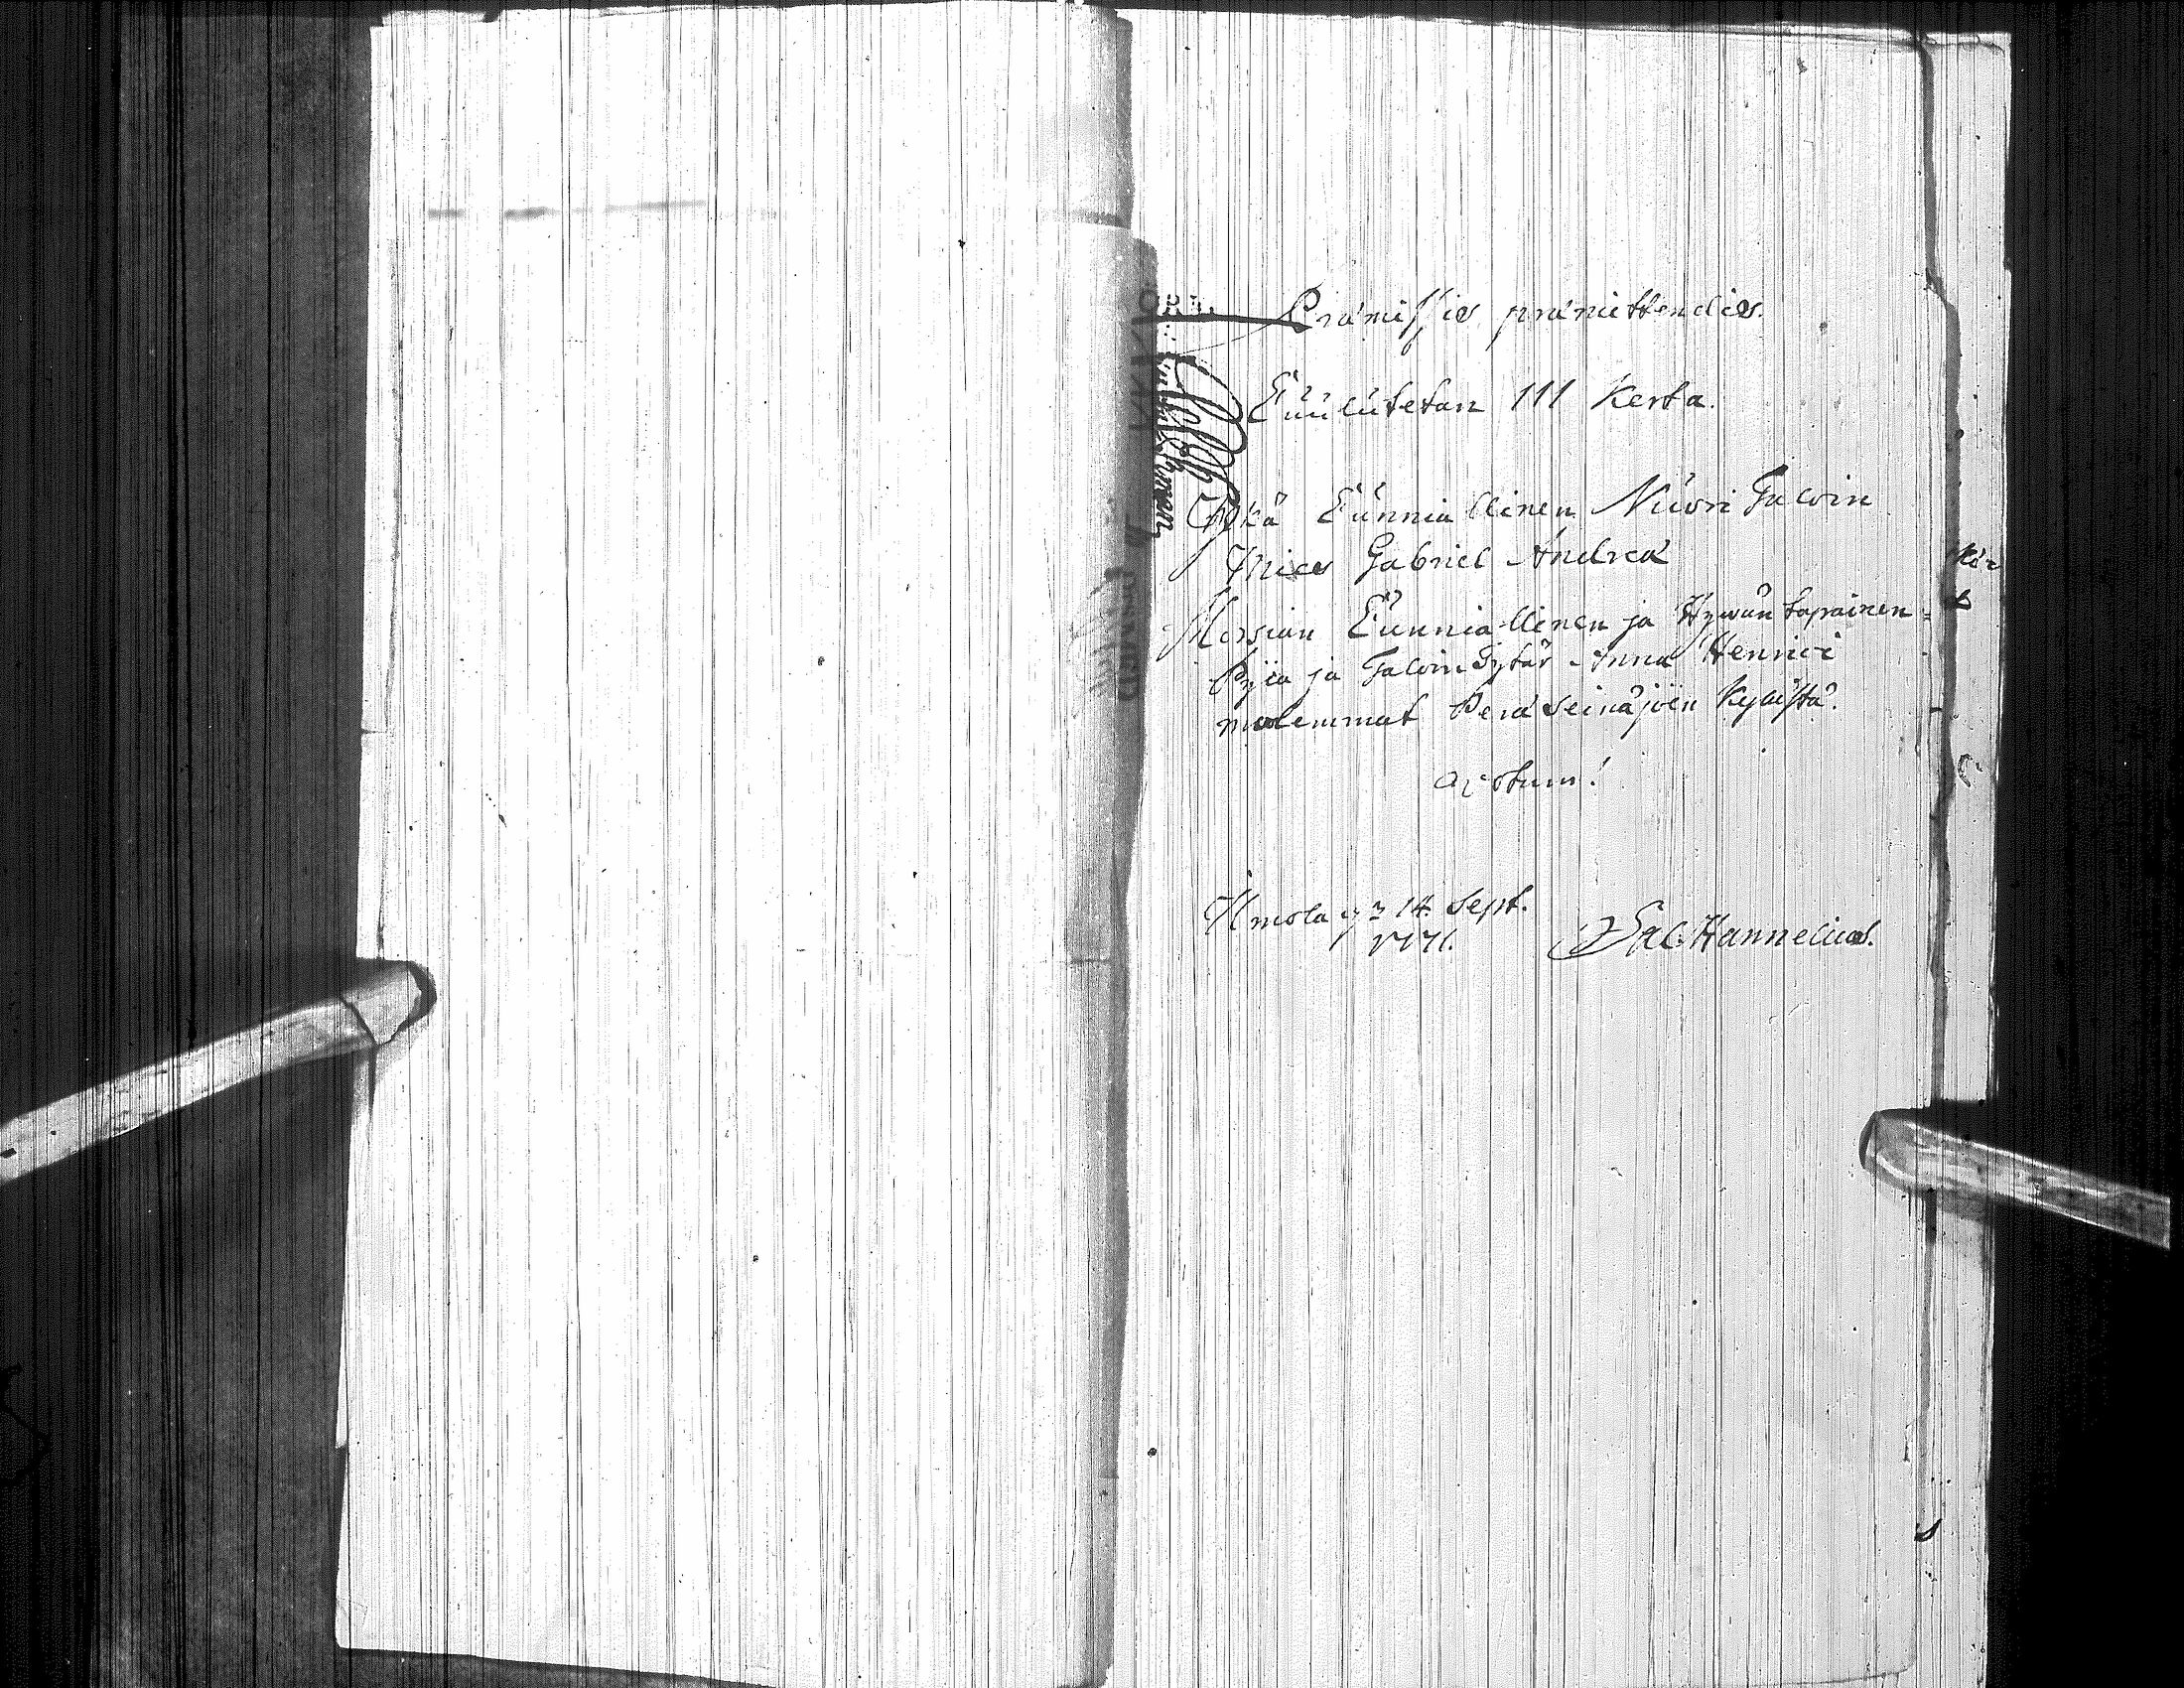 Præmissis præmittendis.
Cuulutetan III Kerta.
Ylkä Cunniallinen Nuori Taloin
Mies Gabriel Andreæ
Morsian Cunniallinen ja Hywäntapainen
Pyia ja TaloinTytär Anna Henrici
molemmat Peräseinäjoen Kyläistä.
votum!
Ilmola 14 Sept.
1771.
Sal. Hannelius.